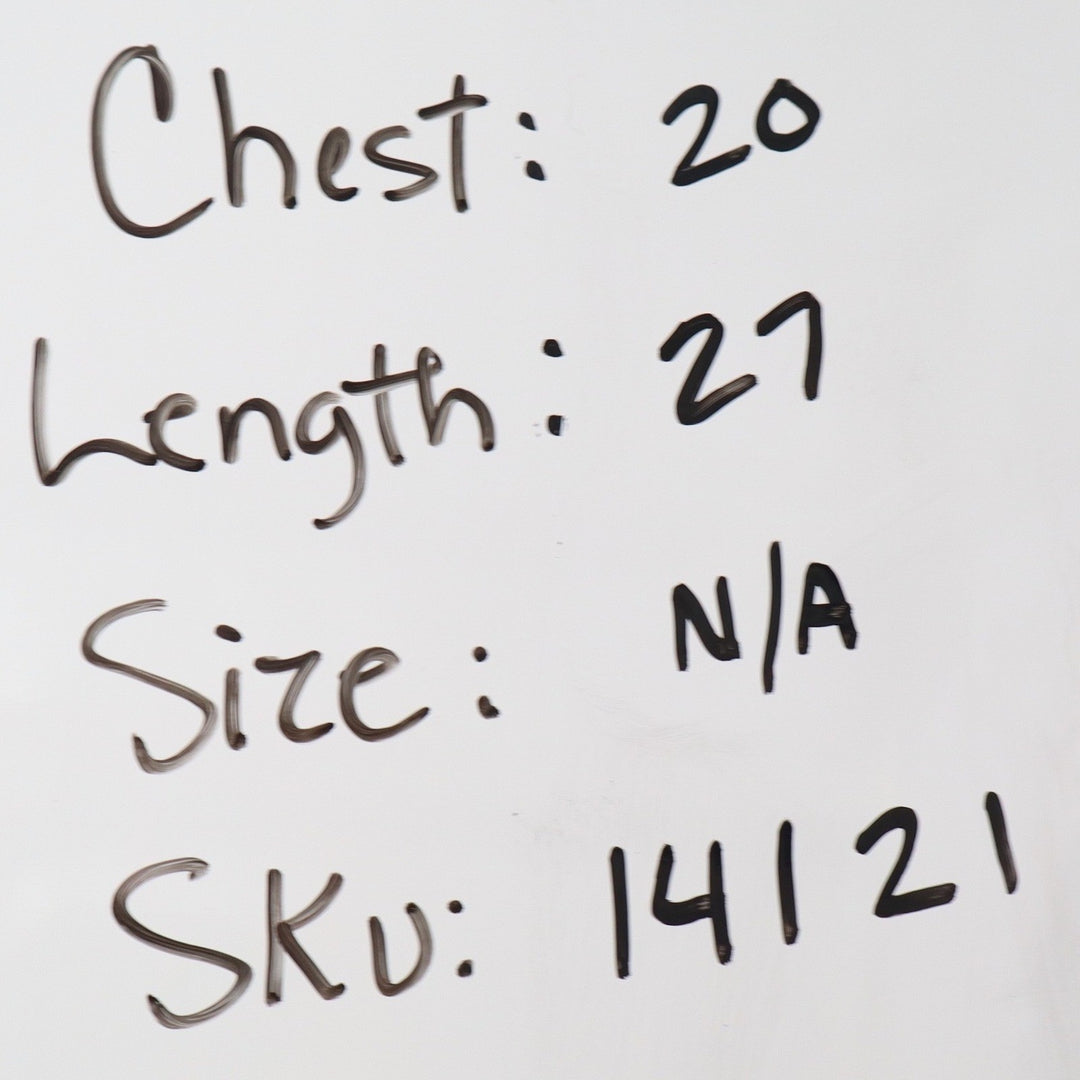 Chest: 20
Length: 27
Size: N/A
SKU: 14121